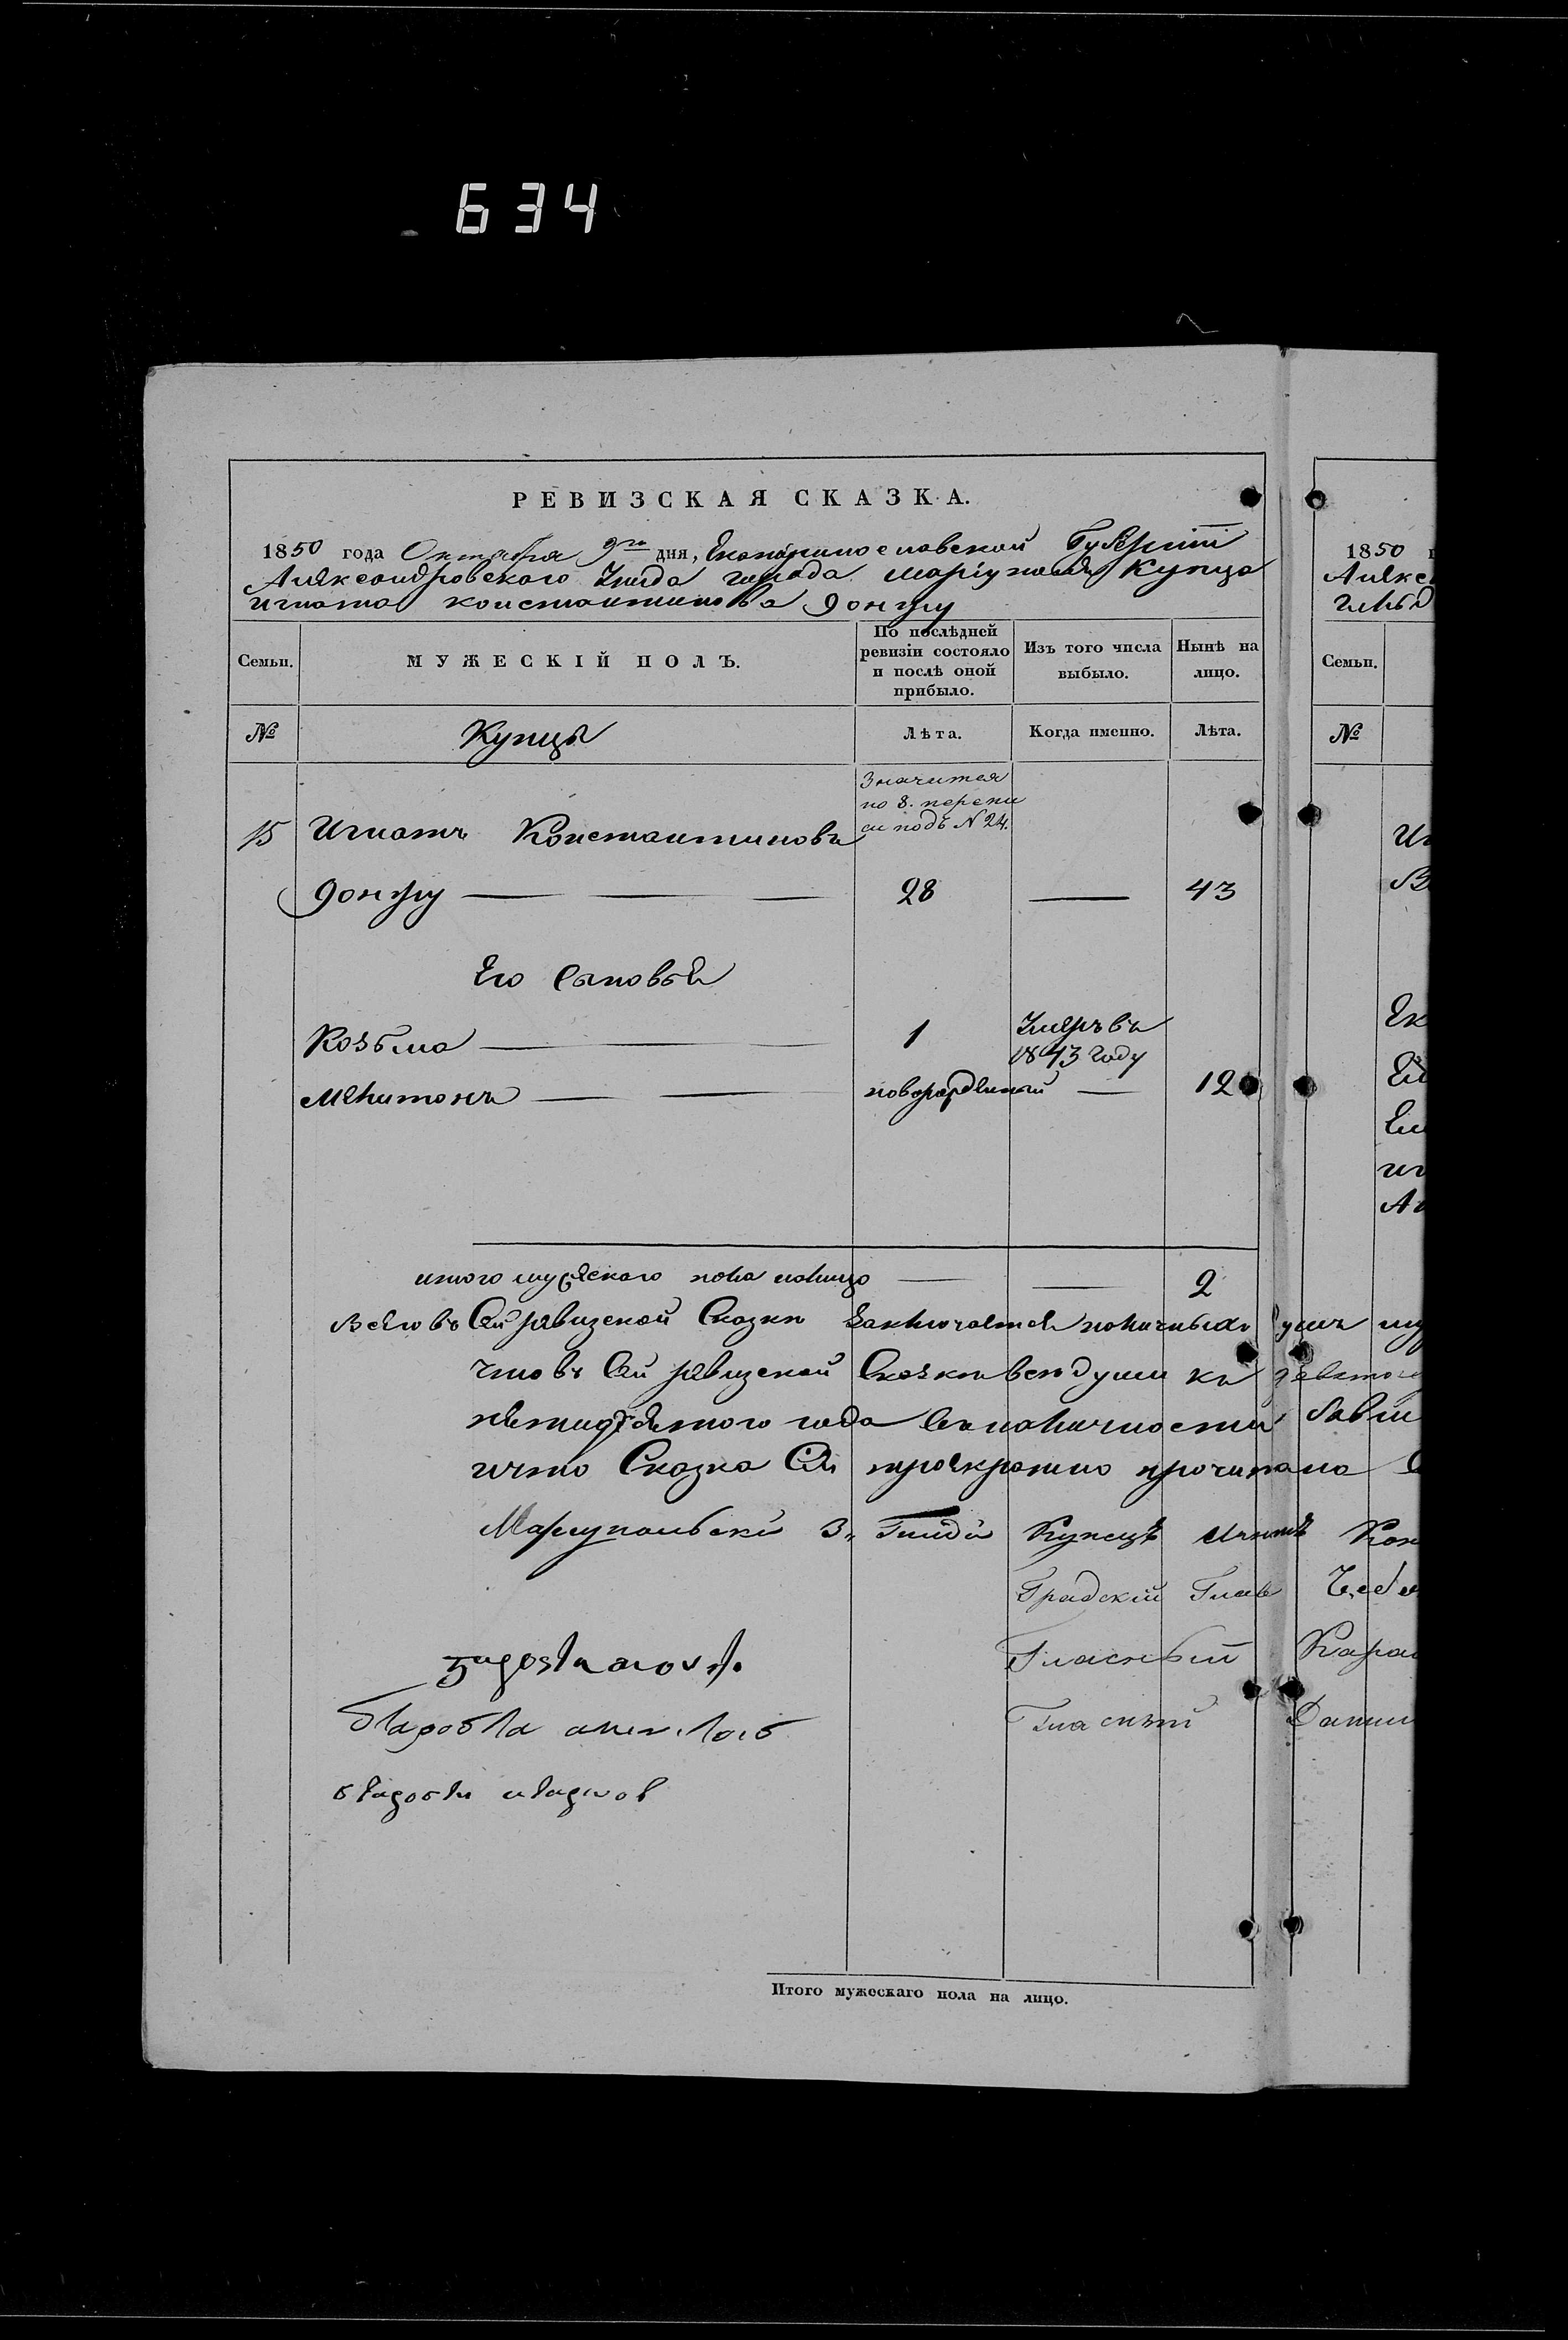 634
РЕВИЗСКАЯ СКАЗКА.
1850 года Октября 9го дня, Екатеринославской Губерніи
Александровского Уезда города Маріуполя Купца
Игната Константинова Донжу
Семьи.
МУЖЕСКІЙ ПОЛЪ.
По послѣдней ревизіи состояло и послѣ оной прибыло.
Изъ того числа выбыло.
Нынѣ на лицо.
№
Купцы
Лѣта.
Когда именно.
Лѣта.
Значится
по 8. перепи
си подъ N 24.
15 Игнатъ Константиновъ
Донжу — 28 — 43
Его Сыновья
Козьма — 1 Умеръ въ
1843 году
Мелитонъ — новорожденный — 12
итого мужескаго пола налицо — — 2
Всего въ Сей ревизской Сказки заключается наличныхъ душъ му
что въ Сей ревизской Сказки все души къ девятому
пятидесятого года въ наличности бывш
ичто Сказка Сія троекратно прочитана
Маріупольскій 3й Гилдіи Купецъ Игнатъ Кон
Градскій Глав
Гласный Кара
Гласный Дани
Итого мужескаго пола на лицо.
1850
Алекс
Семьи.
№
Иг
Ек